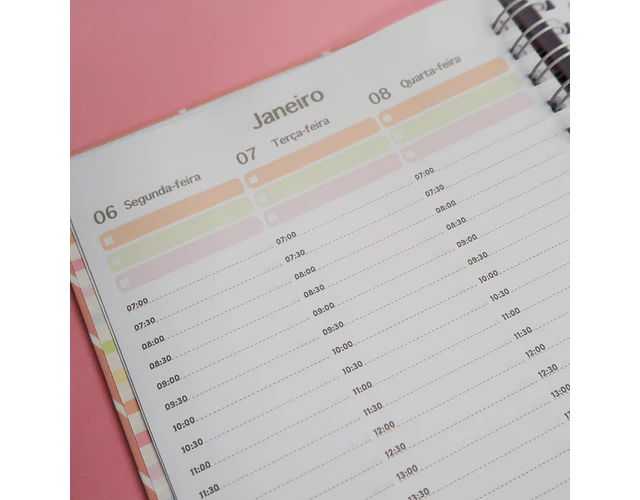 Janeiro
06 Segunda-feira
07 Terça-feira
08 Quarta-feira
07:00
07:30
08:00
08:30
09:00
09:30
10:00
10:30
11:00
11:30
07:00
07:30
08:00
08:30
09:00
09:30
10:00
10:30
11:00
11:30
12:00
12:30
13:00
07:00
07:30
08:00
08:30
09:00
09:30
10:00
10:30
11:00
11:30
12:00
12:30
13:00